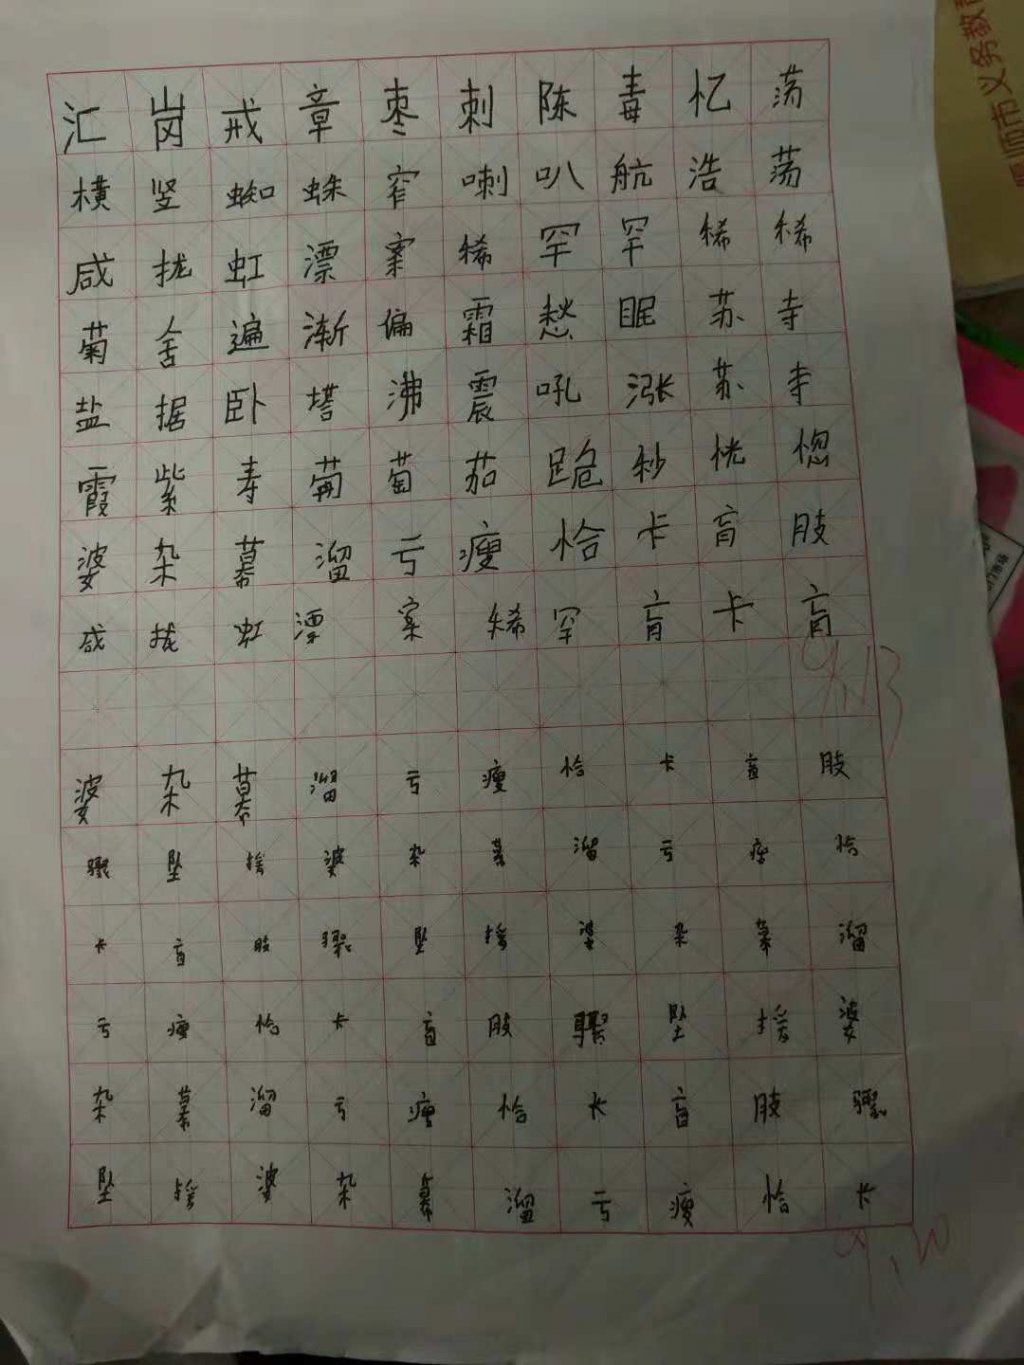 汇岗戒章枣刺陈毒忆荡
横竖蜘蛛窄喇叭航浩荡
咸拢虹漂寨稀罕罕稀稀
菊舍遍渐偏霜愁眠苏寺
盐据卧塔沸震吼涨苏寺
霞紫寿葡萄茄跪秒恍惚
婆杂幕溜亏瘦恰卡盲肢
咸拢虹漂寨稀罕盲卡盲
9.13
婆杂幕溜亏瘦恰卡盲肢
骤坠援婆杂幕溜亏瘦恰
卡盲肢骤坠援婆杂幕溜
亏瘦恰卡盲肢骤坠援婆
杂幕溜亏瘦恰卡盲肢骤
坠援婆杂幕溜亏瘦恰卡
师市义务教